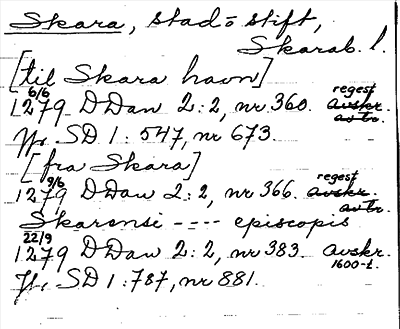 Skara, stad o stift,
Skarab. l.
[til Skara havn]
6/6 regest
1279 DDan 2:2, nr 360. avskr.
avtr.
Jfr. SD 1:547, nr 673.
[fra Skara]
9/6 regest
1279 DDan 2:2, nr 366. avskr.
avtr.
Skarensi ---- episcopis
22/9
1279 DDan 2:2, nr 383. avskr.
1600-t.
Jfr. SD 1:787, nr 881.